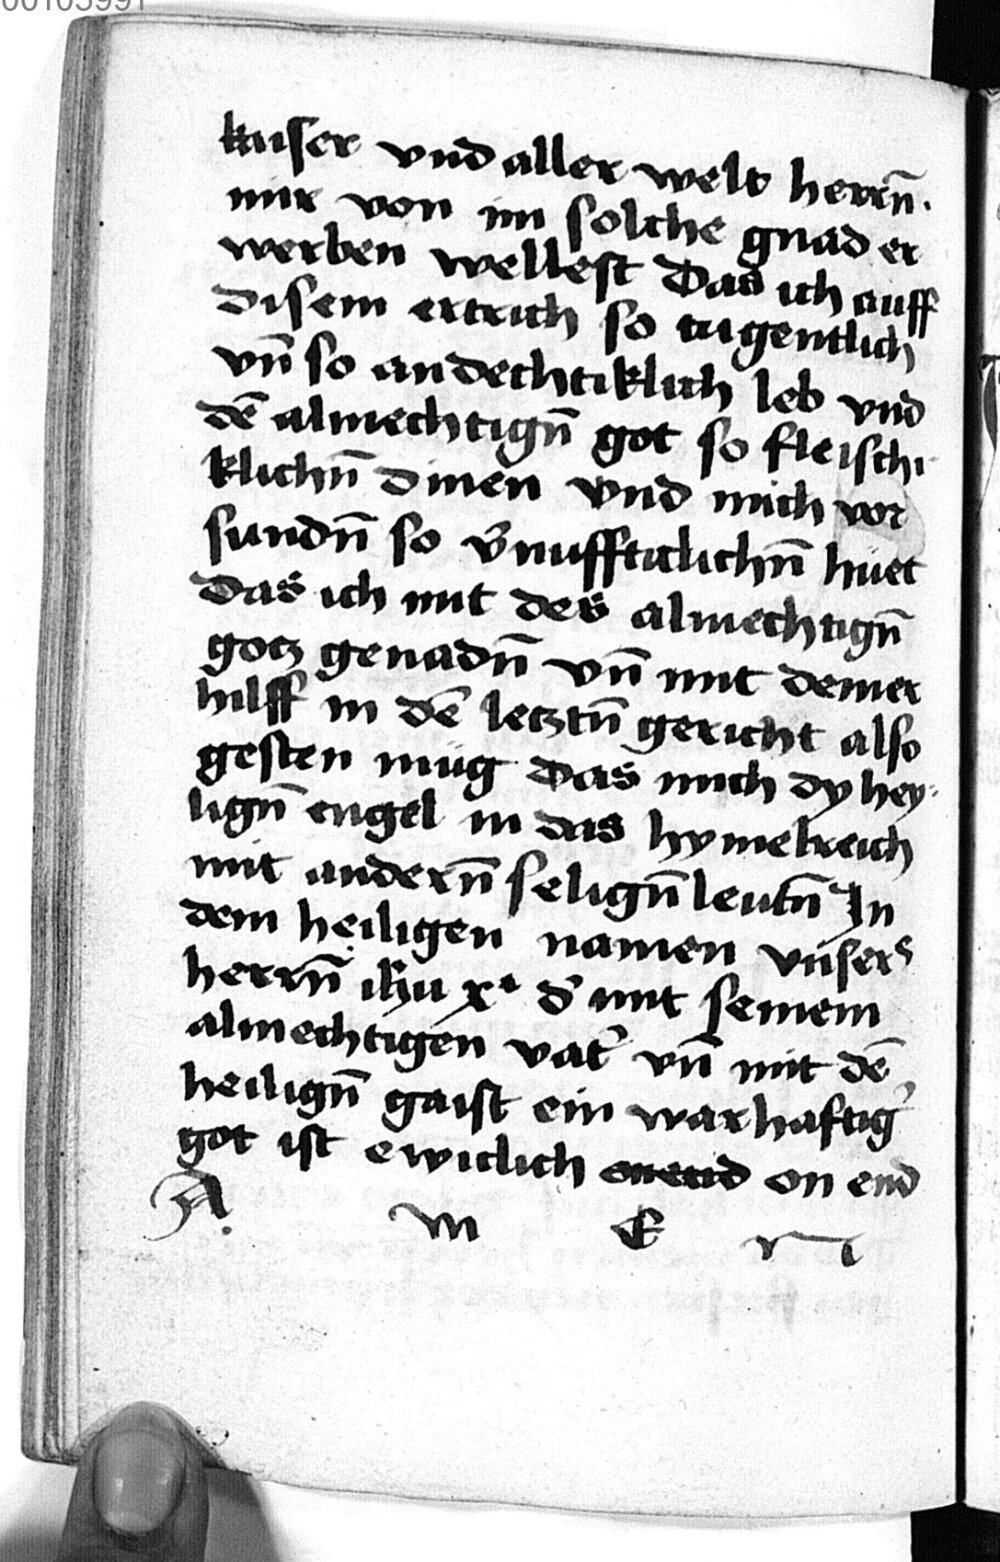 00103991
kaiser vnd aller welt herrn̄.
mir von im solche gnad er
werben wellest das ich auff
disem ertrich so tugentlich
vn̄ so andechtiklich leb vnd
dē almechtign̄ got so fleischi
klichn̄ dinen vnd mich vor
sundn̄ so v̓nuffticlichn̄ hüet
das ich mit des almechtign̄
gotz genadn̄ vn̄ mit deiner
hilff in dē letztn̄ gericht also
gesten müg das mich dy hey
lign̄ engel in das hymelreich
mit andern̄ selign̄ leutn̄ In
dem heiligen namen vnsers
herrn̄ ih̄u x. d̓ mit seinem
almechtigen vat̓ vn̄ mit dē
heilign̄ gaist ein warhaftig̓
got ist ewiclich on end
A. m E n